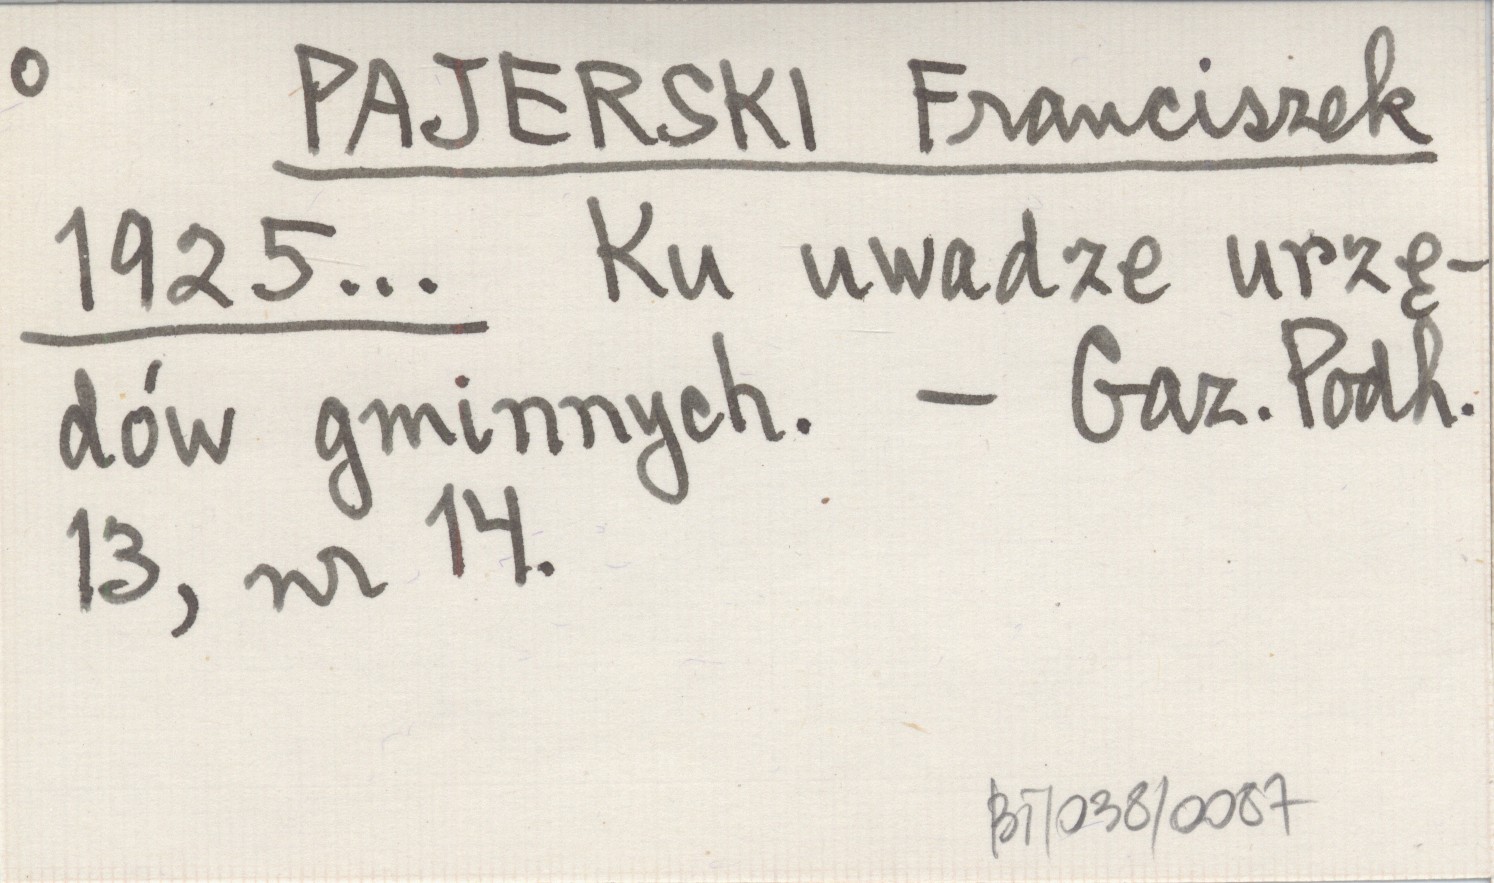 o PAJERSKI Franciszek
1925... Ku uwadze urzę-
dów gminnych. - Gaz. Podh.
13, nr 14.
BT/038/0087